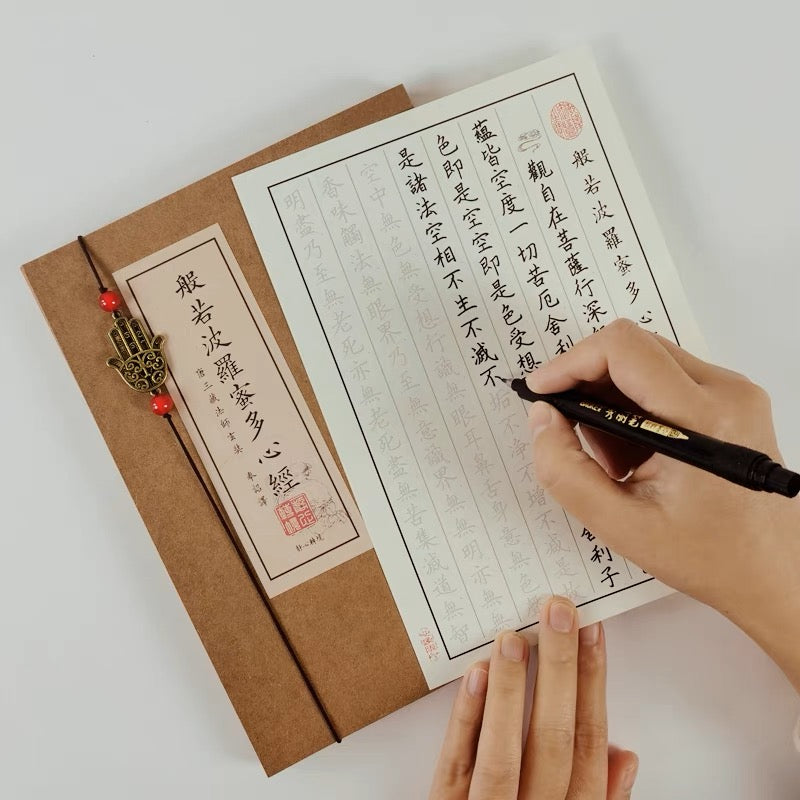 般若波羅蜜多心
觀自在菩薩行深
蘊皆空度一切苦厄舍利
色即是空空即是色受想 舍利子
是諸法空相不生不滅不垢不淨不增不減是故
空中無色無受想行識無眼耳鼻舌身意無色
香味觸法無眼界乃至無意識界無無明亦無無
明盡乃至無老死亦無老死盡無苦集滅道無智
般若波羅蜜多心經
唐三藏法師玄奘 奉詔譯